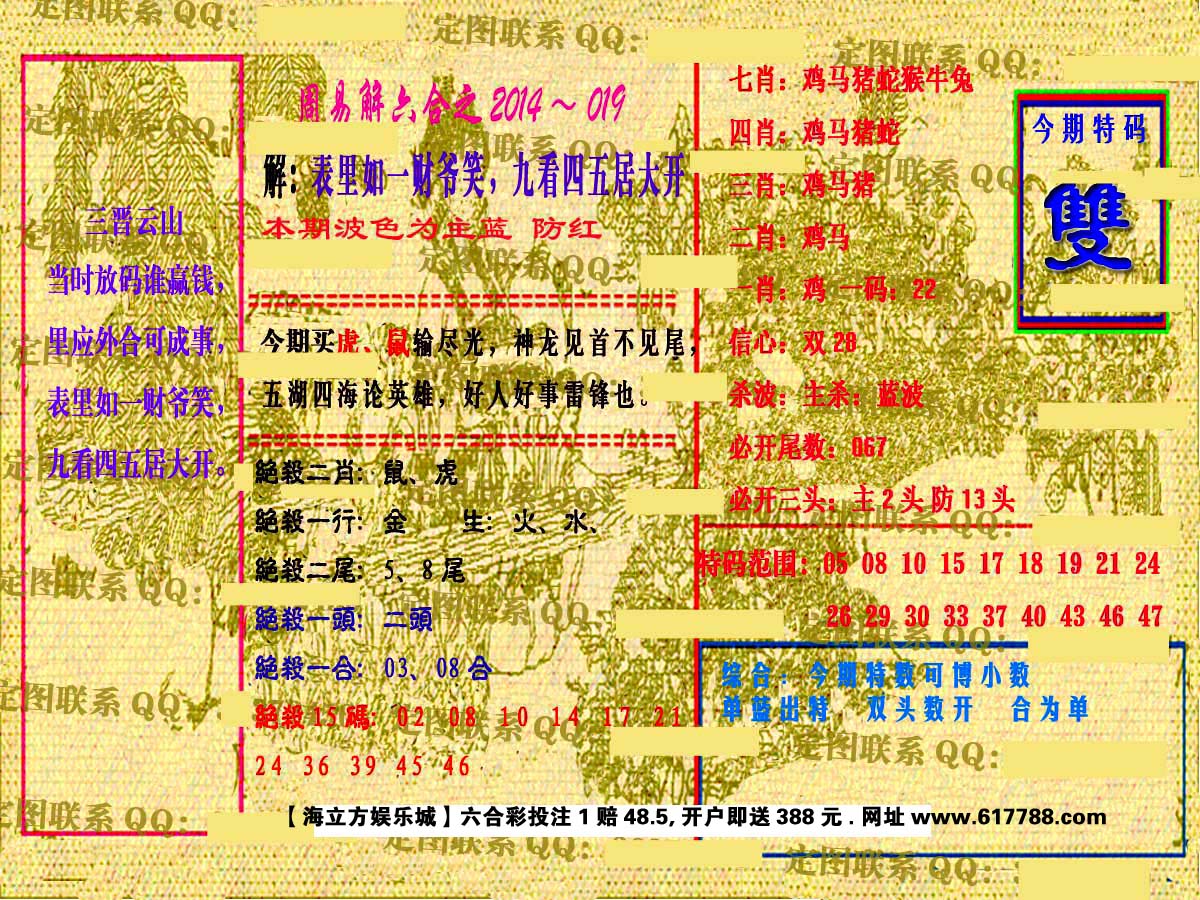 周易解六合之 2014 ~ 019
解：表里如一财爷笑，九看四五居大开
本期波色为主蓝 防红
三晋云山
当时放码谁赢钱，
里应外合可成事，
表里如一财爷笑，
九看四五居大开。
今期买虎、鼠输尽光，神龙见首不见尾，
五湖四海论英雄，好人好事雷锋也。
絕殺二肖：鼠、虎
絕殺一行：金 生：火、水、
絕殺二尾：5、8 尾
絕殺一頭：二頭
絕殺一合：03、08 合
絕殺 15 碼：02 08 10 14 17 21
24 36 39 45 46
七肖：鸡马猪蛇猴牛兔
四肖：鸡马猪蛇
三肖：鸡马猪
二肖：鸡马
一肖：鸡 一码：22
信心：双 28
杀波：主杀：蓝波
必开尾数：067
必开三头：主 2 头 防 13 头
今期特码
雙
特码范围：05 08 10 15 17 18 19 21 24
26 29 30 33 37 40 43 46 47
综合：今期特数可博小数
单蓝出特 双头数开 合为单
【海立方娱乐城】六合彩投注 1 赔 48.5, 开户即送 388 元 . 网址 www.617788.com
定图联系 QQ:
定图联系 QQ:
定图联系 QQ:
定图联系 QQ:
定图联系 QQ:
定图联系 QQ:
定图联系 QQ:
定图联系 QQ:
定图联系 QQ:
定图联系 QQ: